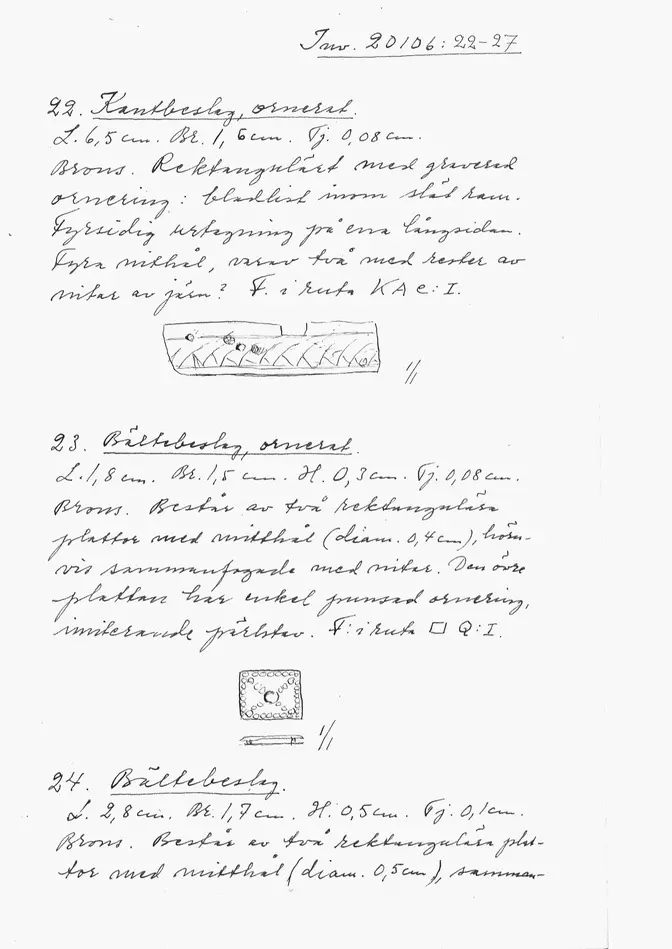 Inv. 20106:22-27
22. Kantbeslag, ornerat.
L. 6,5 cm. Br. 1,6 cm. Tj. 0,08 cm.
Brons. Rektangulärt med graverad
ornering: bladlist inom slät ram.
Fyrsidig urtagning på ena långsidan.
Fyra nithål, varav två med rester av
nitar av järn? F. i ruta KA c:I.
1/1
23. Bältebeslag, ornerat.
L. 1,8 cm. Br. 1,5 cm. H. 0,3 cm. Tj. 0,08 cm.
Brons. Består av två rektangulära
plattor med mitthål (diam. 0,4 cm), hörn-
vis sammanfogade med nitar. Den övre
plattan har enkel punsad ornering,
imiterande pärlstav. F: i ruta □ Q:I.
1/1
24. Bältebeslag.
L. 2,8 cm. Br. 1,7 cm. H. 0,5 cm. Tj. 0,1 cm.
Brons. Består av två rektangulära plat-
tor med mitthål (diam. 0,5 cm), samman-